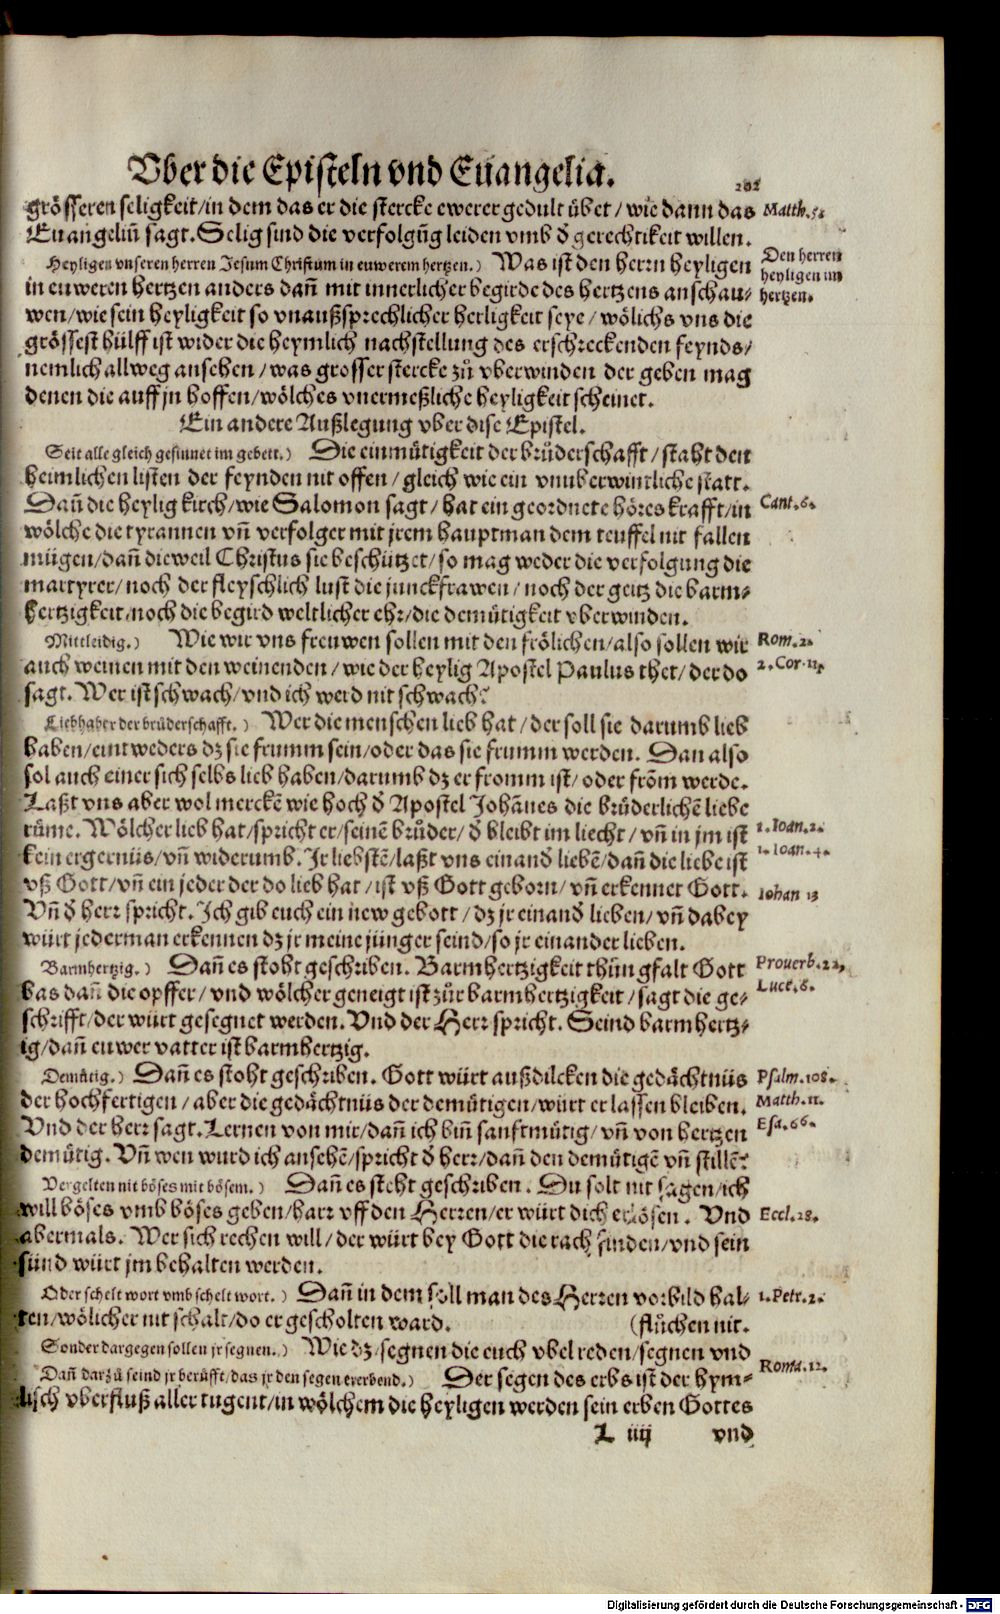 Vber die Episteln vnd Euangelia.
202
grösseren seligkeit/in dem das er die stercke ewerer gedult übet/wie dann das
Matth.5.
Euangeliū sagt. Selig sind die verfolgūg leiden vmb d̄ gerechtikeit willen.
Heyligen vnseren herren Jesum Christum in euwerem hertzen.) Was ist den herrn heyligen
Den herren
heyligen im
hertzen.
in euweren hertzen anders dañ mit innerlicher begirde des hertzens anschau-
wen/wie sein heyligkeit so vnaußsprechlicher herligkeit seye/wölichs vns die
grössest hülff ist wider die heymlich nachstellung des erschreckenden feynds/
nemlich allweg ansehen/was grosser stercke zů vberwinden der geben mag
denen die auff jn hoffen/wölches vnermeßliche heyligkeit scheinet.
Ein andere Außlegung vber dise Epistel.
Seit alle gleich gesinnet im gebett.) Die einmütigkeit der brůderschafft/staht den
heimlichen listen der feynden nit offen/gleich wie ein vnuberwintliche statt.
Dañ die heylig kirch/wie Salomon sagt/hat ein geordnete höres krafft/in
Cant.6.
wölche die tyrannen vñ verfolger mit jrem hauptman dem teuffel nit fallen
mügen/dañ dieweil Christus sie beschützet/so mag weder die verfolgung die
martyrer/noch der fleyschlich lust die junckfrawen/noch der geitz die barm-
hertzigkeit/noch die begird weltlicher ehr/die demütigkeit vberwinden.
Mittleidig.) Wie wir vns freuwen sollen mit den frölichen/also sollen wir
Rom.2.
auch weinen mit den weinenden/wie der heylig Apostel Paulus thet/der do
2.Cor.11.
sagt. Wer ist schwach/vnd ich werd nit schwach?
Liebhaber der brüderschafft.) Wer die menschen lieb hat/der soll sie darumb lieb
haben/eintweders dz sie frumm sein/oder das sie frumm werden. Dan also
sol auch einer sich selbs lieb haben/darumb dz er fromm ist/oder from̄ werde.
Laßt vns aber wol merckē wie hoch d̄ Apostel Johānes die brüderlichē liebe
rüme. Wölcher lieb hat/spricht er/seinē brůder/d̄ bleibt im liecht/vñ in jm ist
1.Ioan.2.
kein ergernüs/vñ widerumb. Ir liebstē/laßt vns einand̄ liebē/dañ die liebe ist
1.Ioan.4.
vß Gott/vñ ein jeder der do lieb hat/ist vß Gott geborn/vñ erkennet Gott.
Iohan 13
Vñ d̄ herr spricht. Ich gib euch ein new gebott/dz jr einand̄ lieben/vñ dabey
würt jederman erkennen dz jr meine jünger seind/so jr einander lieben.
Barmhertzig.) Dañ es stoht geschriben. Barmhertzigkeit thůn gfalt Gott
Prouerb.22.
bas dañ die opffer/vnd wölcher geneigt ist zůr barmhertzigkeit/sagt die ge-
Luce.6.
schrifft/der würt gesegnet werden. Vnd der Herr spricht. Seind barmhertz-
ig/dañ euwer vatter ist barmhertzig.
Demütig.) Dañ es stoht geschriben. Gott würt außdilcken die gedächtnüs
Psalm.108.
der hochfertigen/aber die gedächtnüs der demütigen/würt er lassen bleiben.
Matth.11.
Vnd der herr sagt. Lernen von mir/dañ ich biñ sanftmütig/vñ von hertzen
Esa.66.
demütig. Vñ wen wurd ich ansehē/spricht d̄ herr/dañ den demütigē vñ stillē?
Vergelten nit böses mit bösem.) Dañ es steht geschriben. Du solt nit sagen/ich
will böses vmb böses geben/harr vff den Herren/er würt dich erlösen. Vnd
Eccl.28.
abermals. Wer sich rechen will/der würt bey Gott die rach finden/vnd sein
sünd würt jm behalten werden.
Oder schelt wort vmb schelt wort.) Dañ in dem soll man des Herren vorbild hal-
1.Petr.2.
ten/wölicher nit schalt/do er gescholten ward. (flůchen nit.
Sonder dargegen sollen jr segnen.) Wie dz/segnen die euch vbel reden/segnen vnd
Roma.12.
Dañ darzů seind jr berüfft/das jr den segen ererbend.) Der segen des erbs ist der hym-
lisch vberfluß aller tugent/in wölchem die heyligen werden sein erben Gottes
L iiij vnd
Digitalisierung gefördert durch die Deutsche Forschungsgemeinschaft - DFG